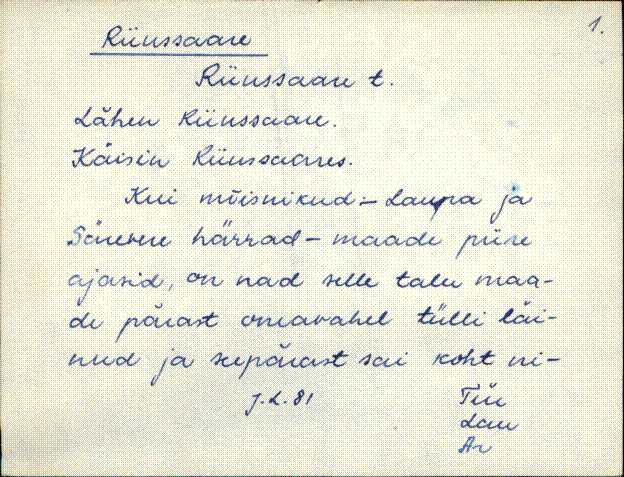 1.
Rüüssaare
Rüüssaare t.
Lähen Rüüssaare.
Käisin Rüüssaares.
Kui mõisnikud:- Laupa ja
Särevere härrad - maade piire
ajasid, on nad selle talu maa-
de pärast omavahel tülli läi-
nud ja seepärast sai koht ni-
J.L.81 Tür
Lau
Ar